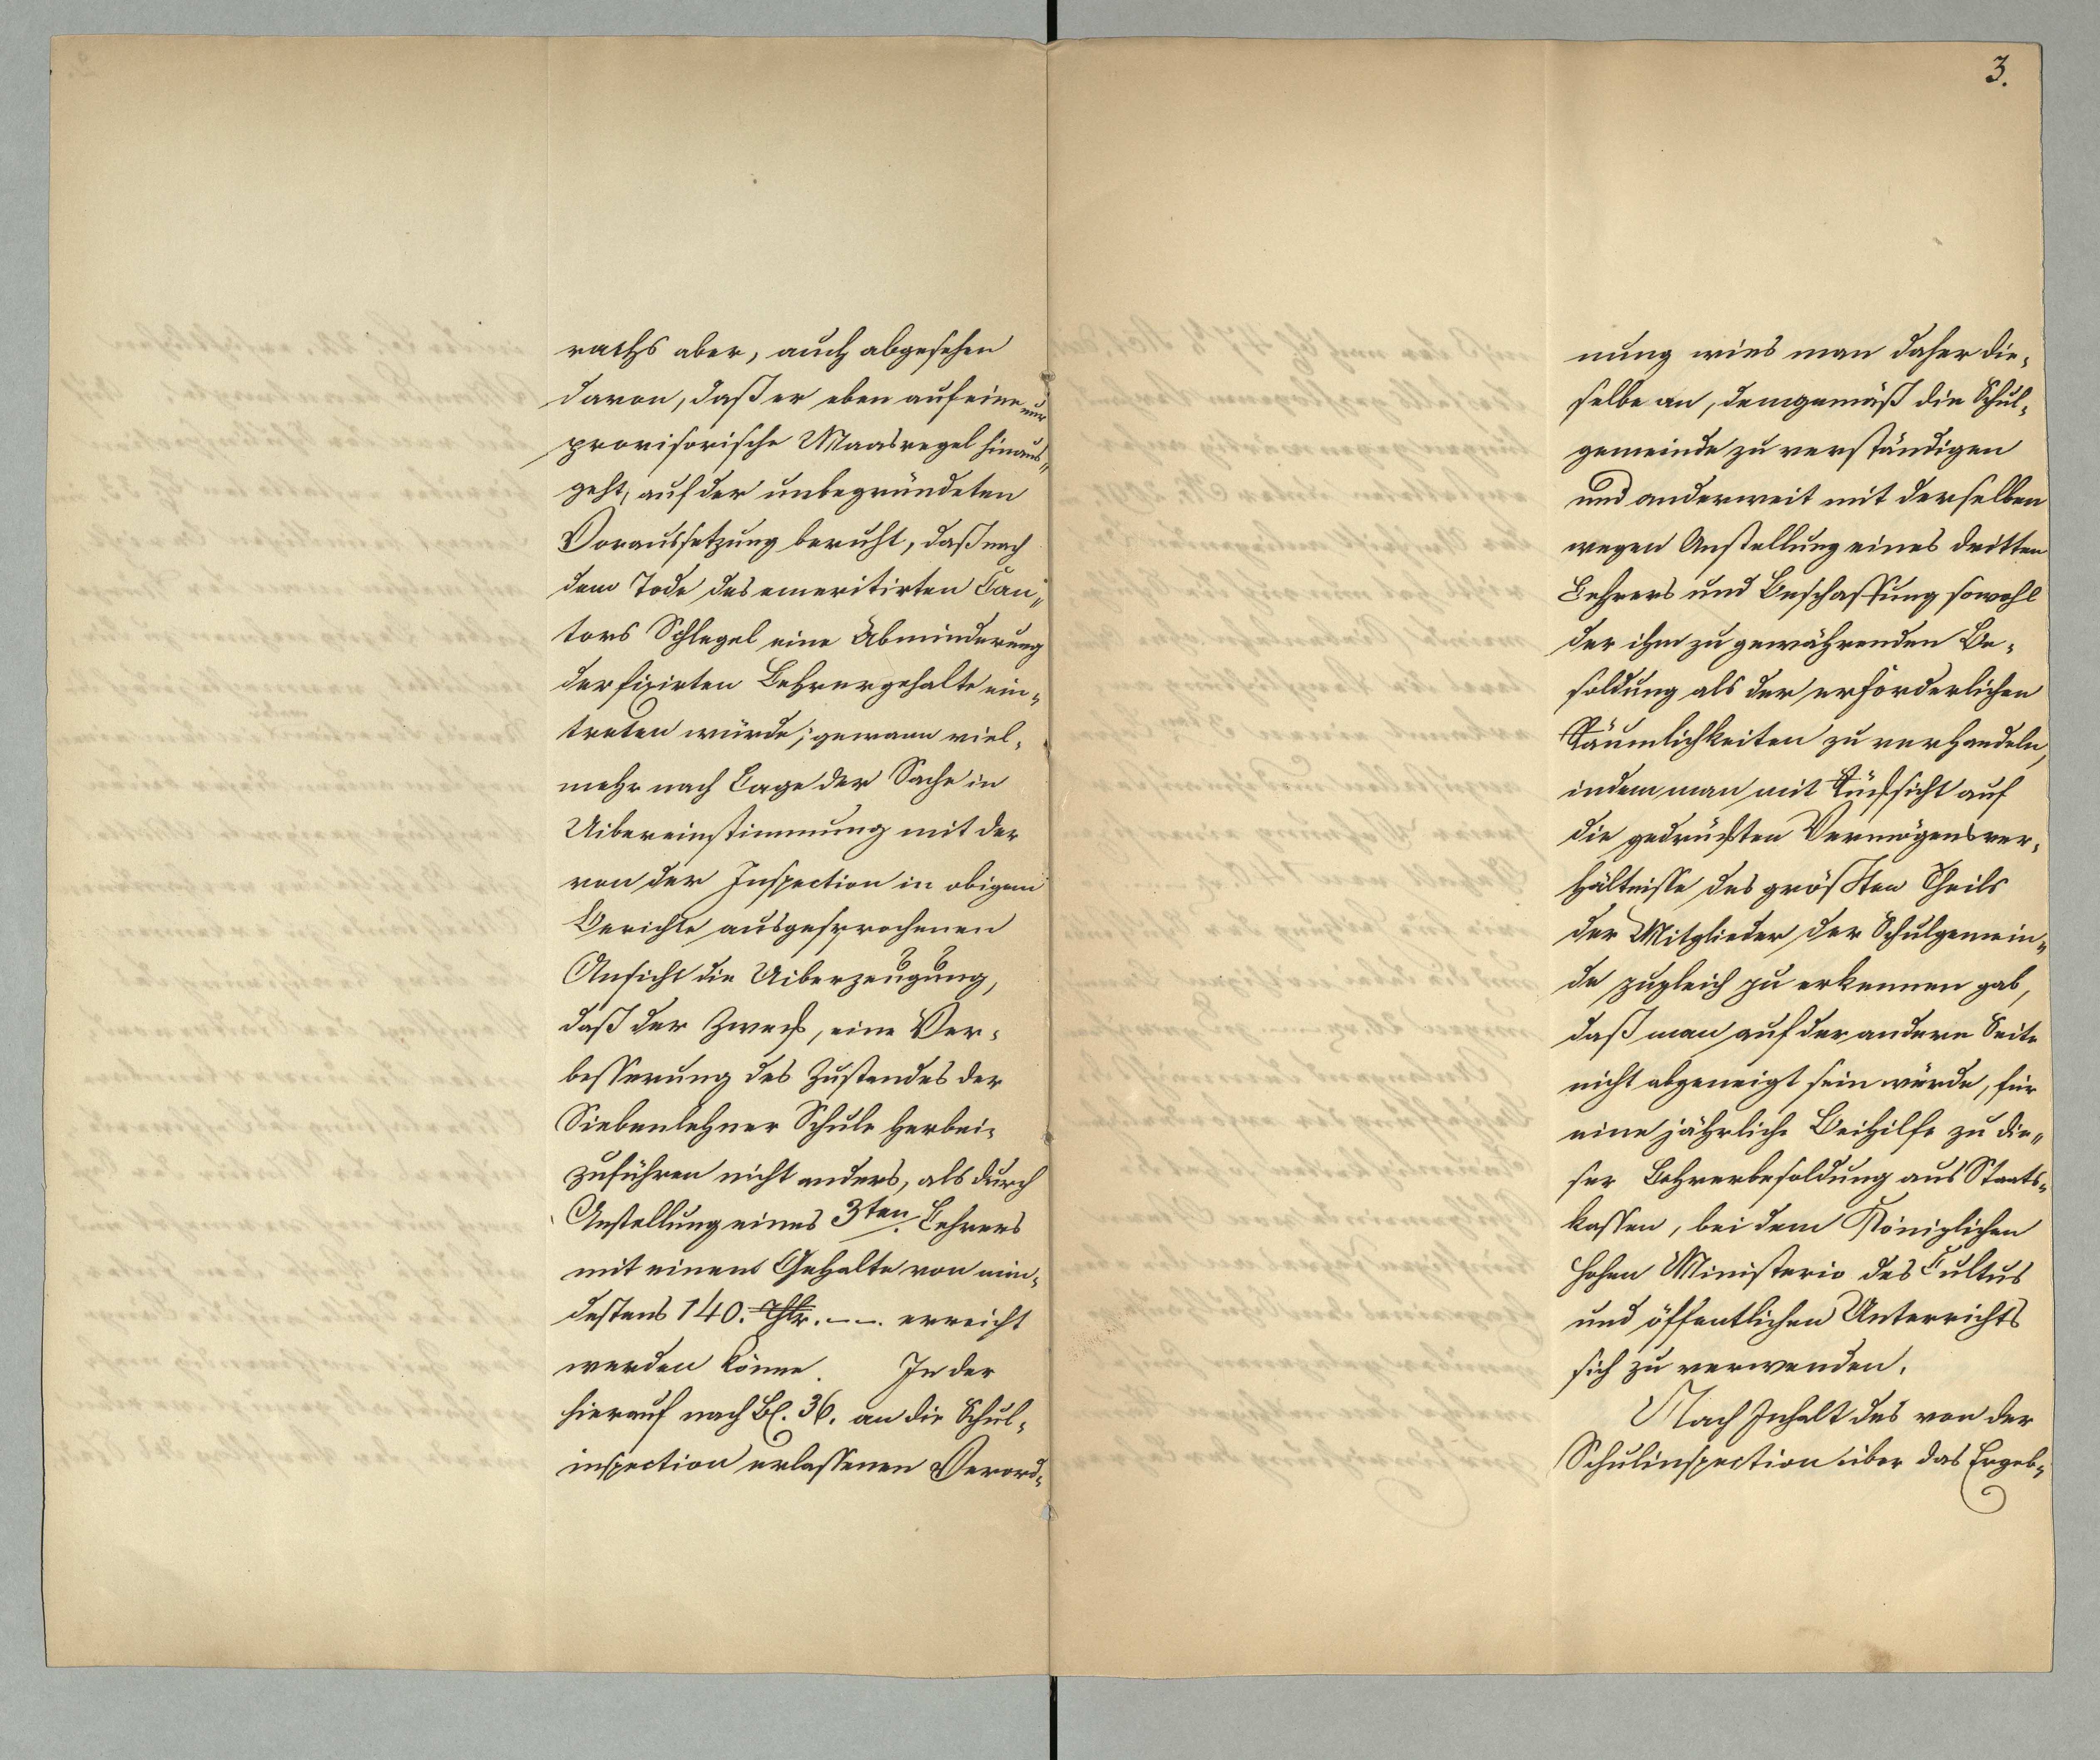 raths aber, auch abgesehen
davon, daß er eben auf eine nur
provisorische Maasregel hinaus„
geht, auf der unbegründeten
Voraussetzung beruht, daß nach
dem Tode des emeritirten Can„
tors Schlegel eine Abminderung
der fixirten Lehrergehalte ein„
treten würde; gewann viel„
mehr nach Lage der Sache in
Uibereinstimmung mit der
von der Inspection in obigem
Berichte ausgesprochenen
Ansicht die Uiberzeugung,
daß der Zweck, eine Ver„
besserung des Zustandes der
Siebenlehner Schule herbei„
zuführen nicht anders, als durch
Anstellung eines 3ten. Lehrers
mit einem Gehalte von min„
destens 140. Thlr. –.–. erreicht
werden könne. In der
hierauf nach Bl. 36. an die Schul„
inspection erlassenen Verord„
3.
nung wies man daher die„
selbe an, demgemäß die Schul„
gemeinde zu verständigen
und anderweit mit derselben
wegen Anstellung eines dritten
Lehrers und Beschaffung sowohl
der ihm zu gewährenden Be„
soldung als der erforderlichen
Räumlichkeiten zu verhandeln,
indem man mit Rücksicht auf
die gedrückten Vermögensver„
hältnisse des größten Theils
der Mitglieder der Schulgemein„
de zugleich zu erkennen gab,
daß man auf der andern Seite
nicht abgeneigt sein würde, für
eine jährliche Beihilfe zu die„
ser Lehrerbesoldung aus Staats„
kassen, bei dem Königlichen
hohen Ministerio des Cultus
und öffentlichen Unterrichts
sich zu verwenden.
Nach Inhalt des von der
Schulinspection über das Ergeb„